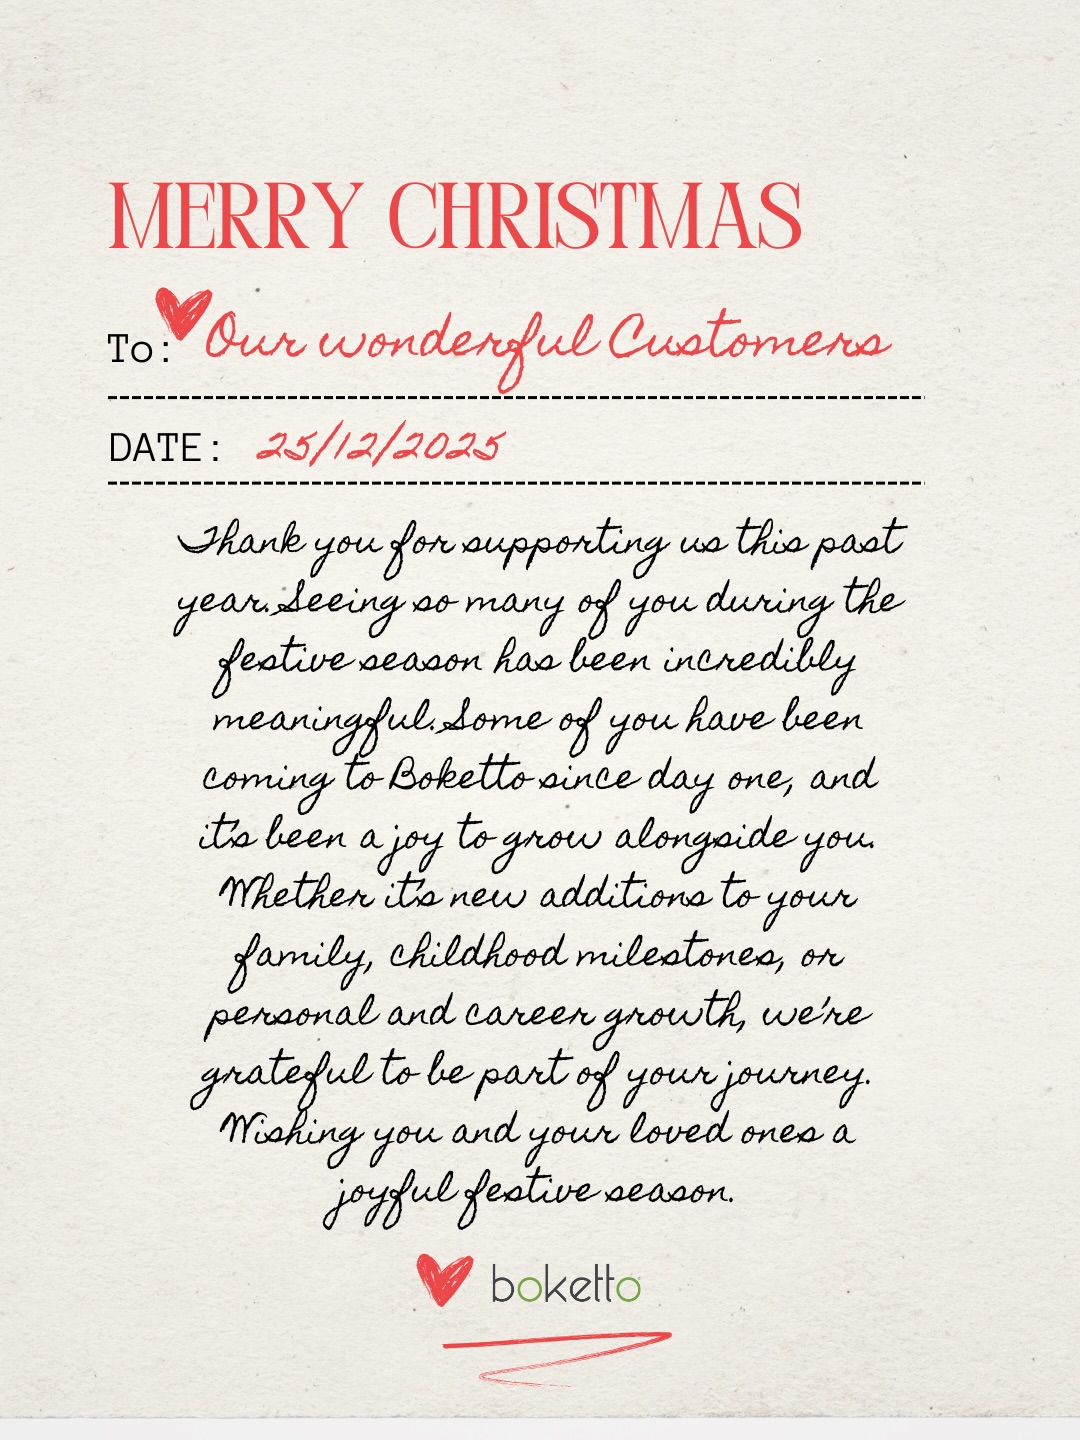 MERRY CHRISTMAS
To: Our wonderful Customers
DATE: 25/12/2025
Thank you for supporting us this past
year. Seeing so many of you during the
festive season has been incredibly
meaningful. Some of you have been
coming to Boketto since day one, and
it's been a joy to grow alongside you.
Whether it's new additions to your
family, childhood milestones, or
personal and career growth, we're
grateful to be part of your journey.
Wishing you and your loved ones a
joyful festive season.
boketto